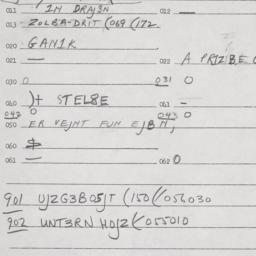 011 IM DRAJ3N 012 —
013 ZOLBA-DRIT (069 (172
020 GAN1K
021 — 022 A PRIZBE
030 0 031 0
040 )+ STEL8E 041 -
042 0 043 0
050 ER VEJNT FUN EJBM,
060 $
061 — 062 0
901 UJZG3B05JT (150((056030
902 UNT3RN HOJZ((055010